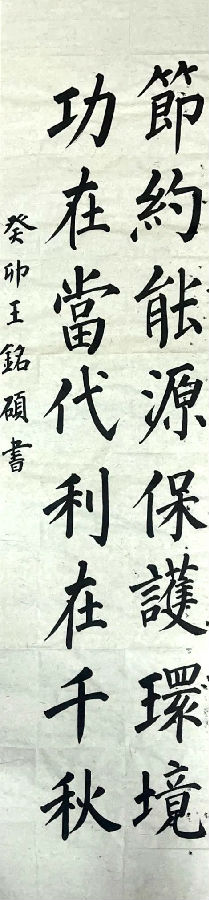 節約能源保護環境
功在當代利在千秋
癸卯王銘碩書